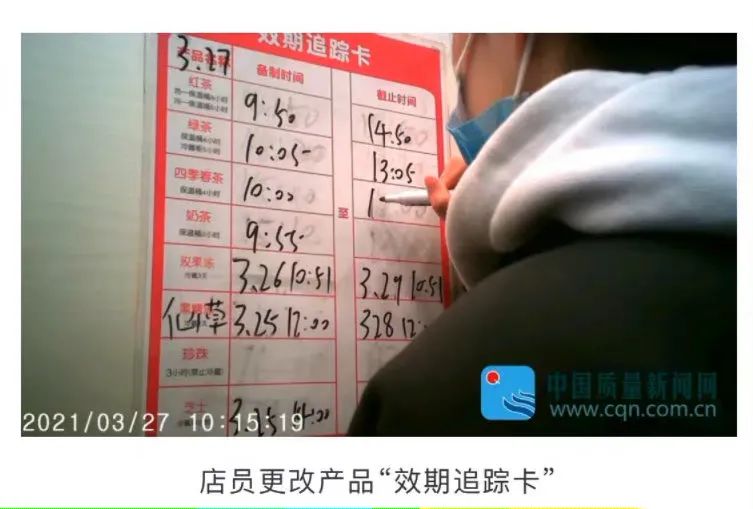 效期追踪卡
产品名称
3.27
备制时间
截止时间
红茶
9:50
14:50
绿茶
10:05
13:05
四季春茶
10:00
1
至
奶茶
9:55
双果冻
冷藏3天
3.26 10:51
3.29 10:51
仙草
3.25 12:00
328 12:
珍珠
芝士
3.25
2021/03/27 10:15:19
中国质量新闻网
www.cqn.com.cn
店员更改产品“效期追踪卡”